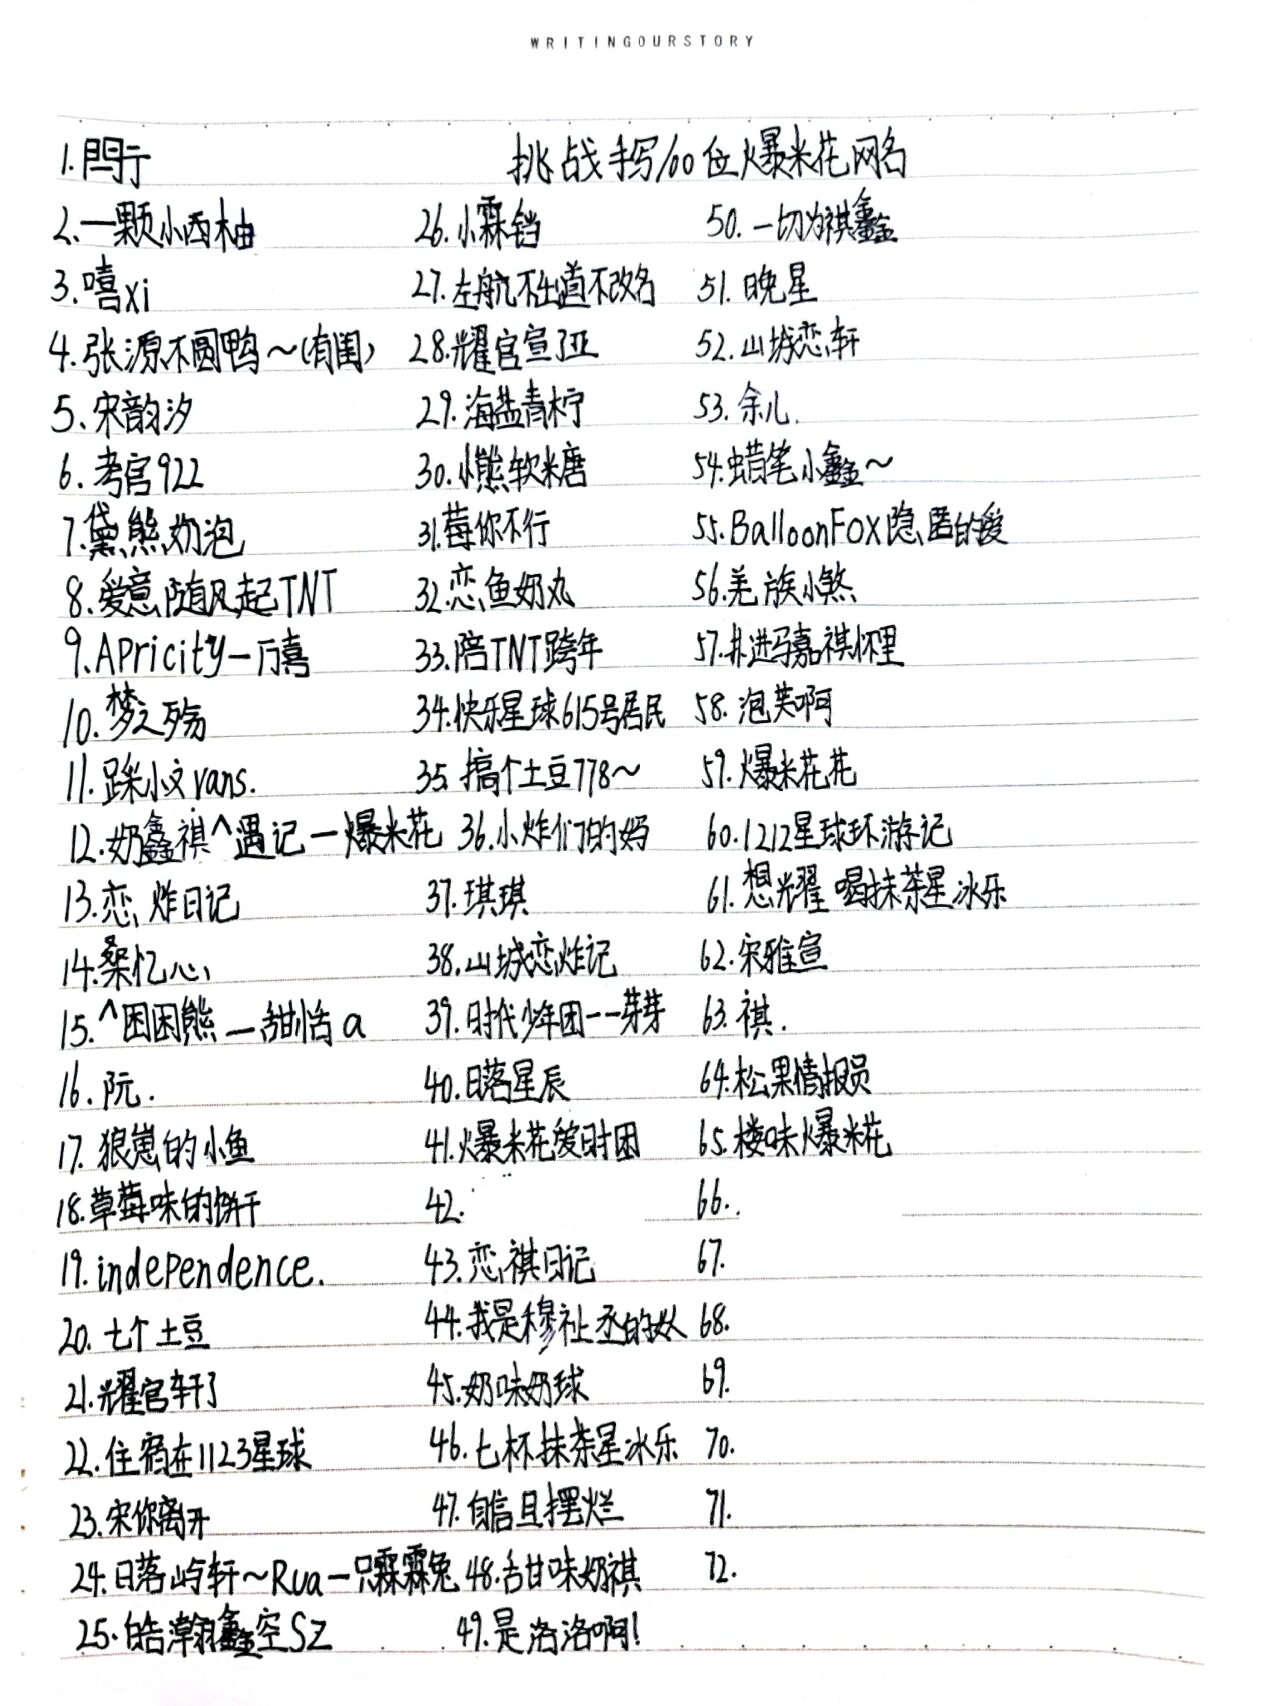 WRITINGOURSTORY
挑战手写100位爆米花网名
1.閂亍
2.一颗小西柚
3.嘻xi
4.张源不圆鸭～(有闺)
5.宋韵汐
6.考官922
7.黛熊奶泡
8.爱意随风起TNT
9.Apricity一万喜
10.梦之殇
11.踩小文vans.
12.奶鑫祺^遇记一爆米花
13.恋炸日记
14.桑忆心
15.^困困熊一甜恬a
16.阮.
17.狼崽的小鱼
18.草莓味的饼干
19.independence.
20.七个土豆
21.耀官轩了
22.住宿在1123星球
23.宋你离开
24.日落屿轩～Rua一只霖霖兔
25.皓瀚鑫空SZ
26.小霖铛
27.左航不出道不改名
28.耀官宣了亚
29.海盐青柠
30.小熊软米唐
31.莓你不行
32.恋鱼奶丸
33.陪TNT跨年
34.快乐星球615号居民
35.搞个土豆778～
36.小炸们的妈
37.琪琪
38.山城恋炸记
39.时代少年团--芽芽
40.日落星辰
41.爆米花爱时团
42.
43.恋祺日记
44.我是穆祉丞的奴
45.奶味奶球
46.七杯抹茶星冰乐
47.自信且摆烂
48.甜味奶祺
49.是洛洛啊!
50.一切为祺鑫
51.晚星
52.山城恋轩
53.余儿.
54.蜡笔小鑫～
55.BalloonFox隐匿的爱
56.羌族小煞
57.扑进马嘉祺怀里
58.泡芙啊
59.爆米花花
60.1212星球环游记
61.想耀喝抹茶星冰乐
62.宋雅宣
63.祺.
64.松果情报员
65.楼味爆米花
66..
67.
68.
69.
70.
71.
72.